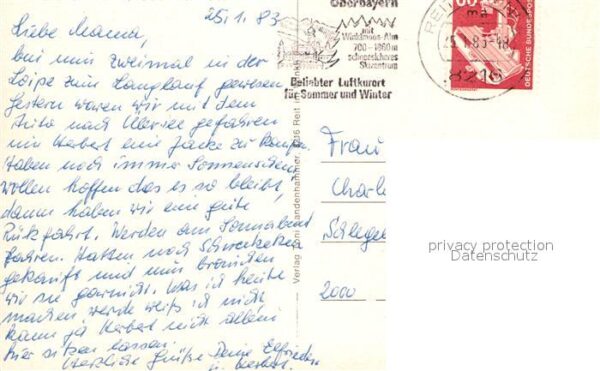 25.1.83
Liebe Mama,
bin nun zweimal in der
Loipe zum Langlauf gewesen
Gestern waren wir mit dem
Auto nach Übersee gefahren
um Herbert eine Jacke zu kaufen.
Haben noch immer Sonnenschein
wollen hoffen das es so bleibt,
dann haben wir eine gute
Rükfahrt. Werden am Sonnabend
fahren. Hatten noch Schneeketten
gekauft und nun brauchten
wir sie garnicht. Was ich heute
machen werde weiß ich nicht
kann ja Herbert nicht allein
hier sitzen lassen.
Herzliche Grüße Deine Elfriede
u. Herbert.
Oberbayern
mit
Winklmoos-Alm
700-1860m
schneesicheres
Skizentrum
Beliebter Luftkurort
für Sommer und Winter
REIT IM
25.1.83-18
8216
60
DEUTSCHE BUNDESPOST
Verlag 8216 Reit im
Frau
Charl
Schlegel
2000
privacy protection
Datenschutz